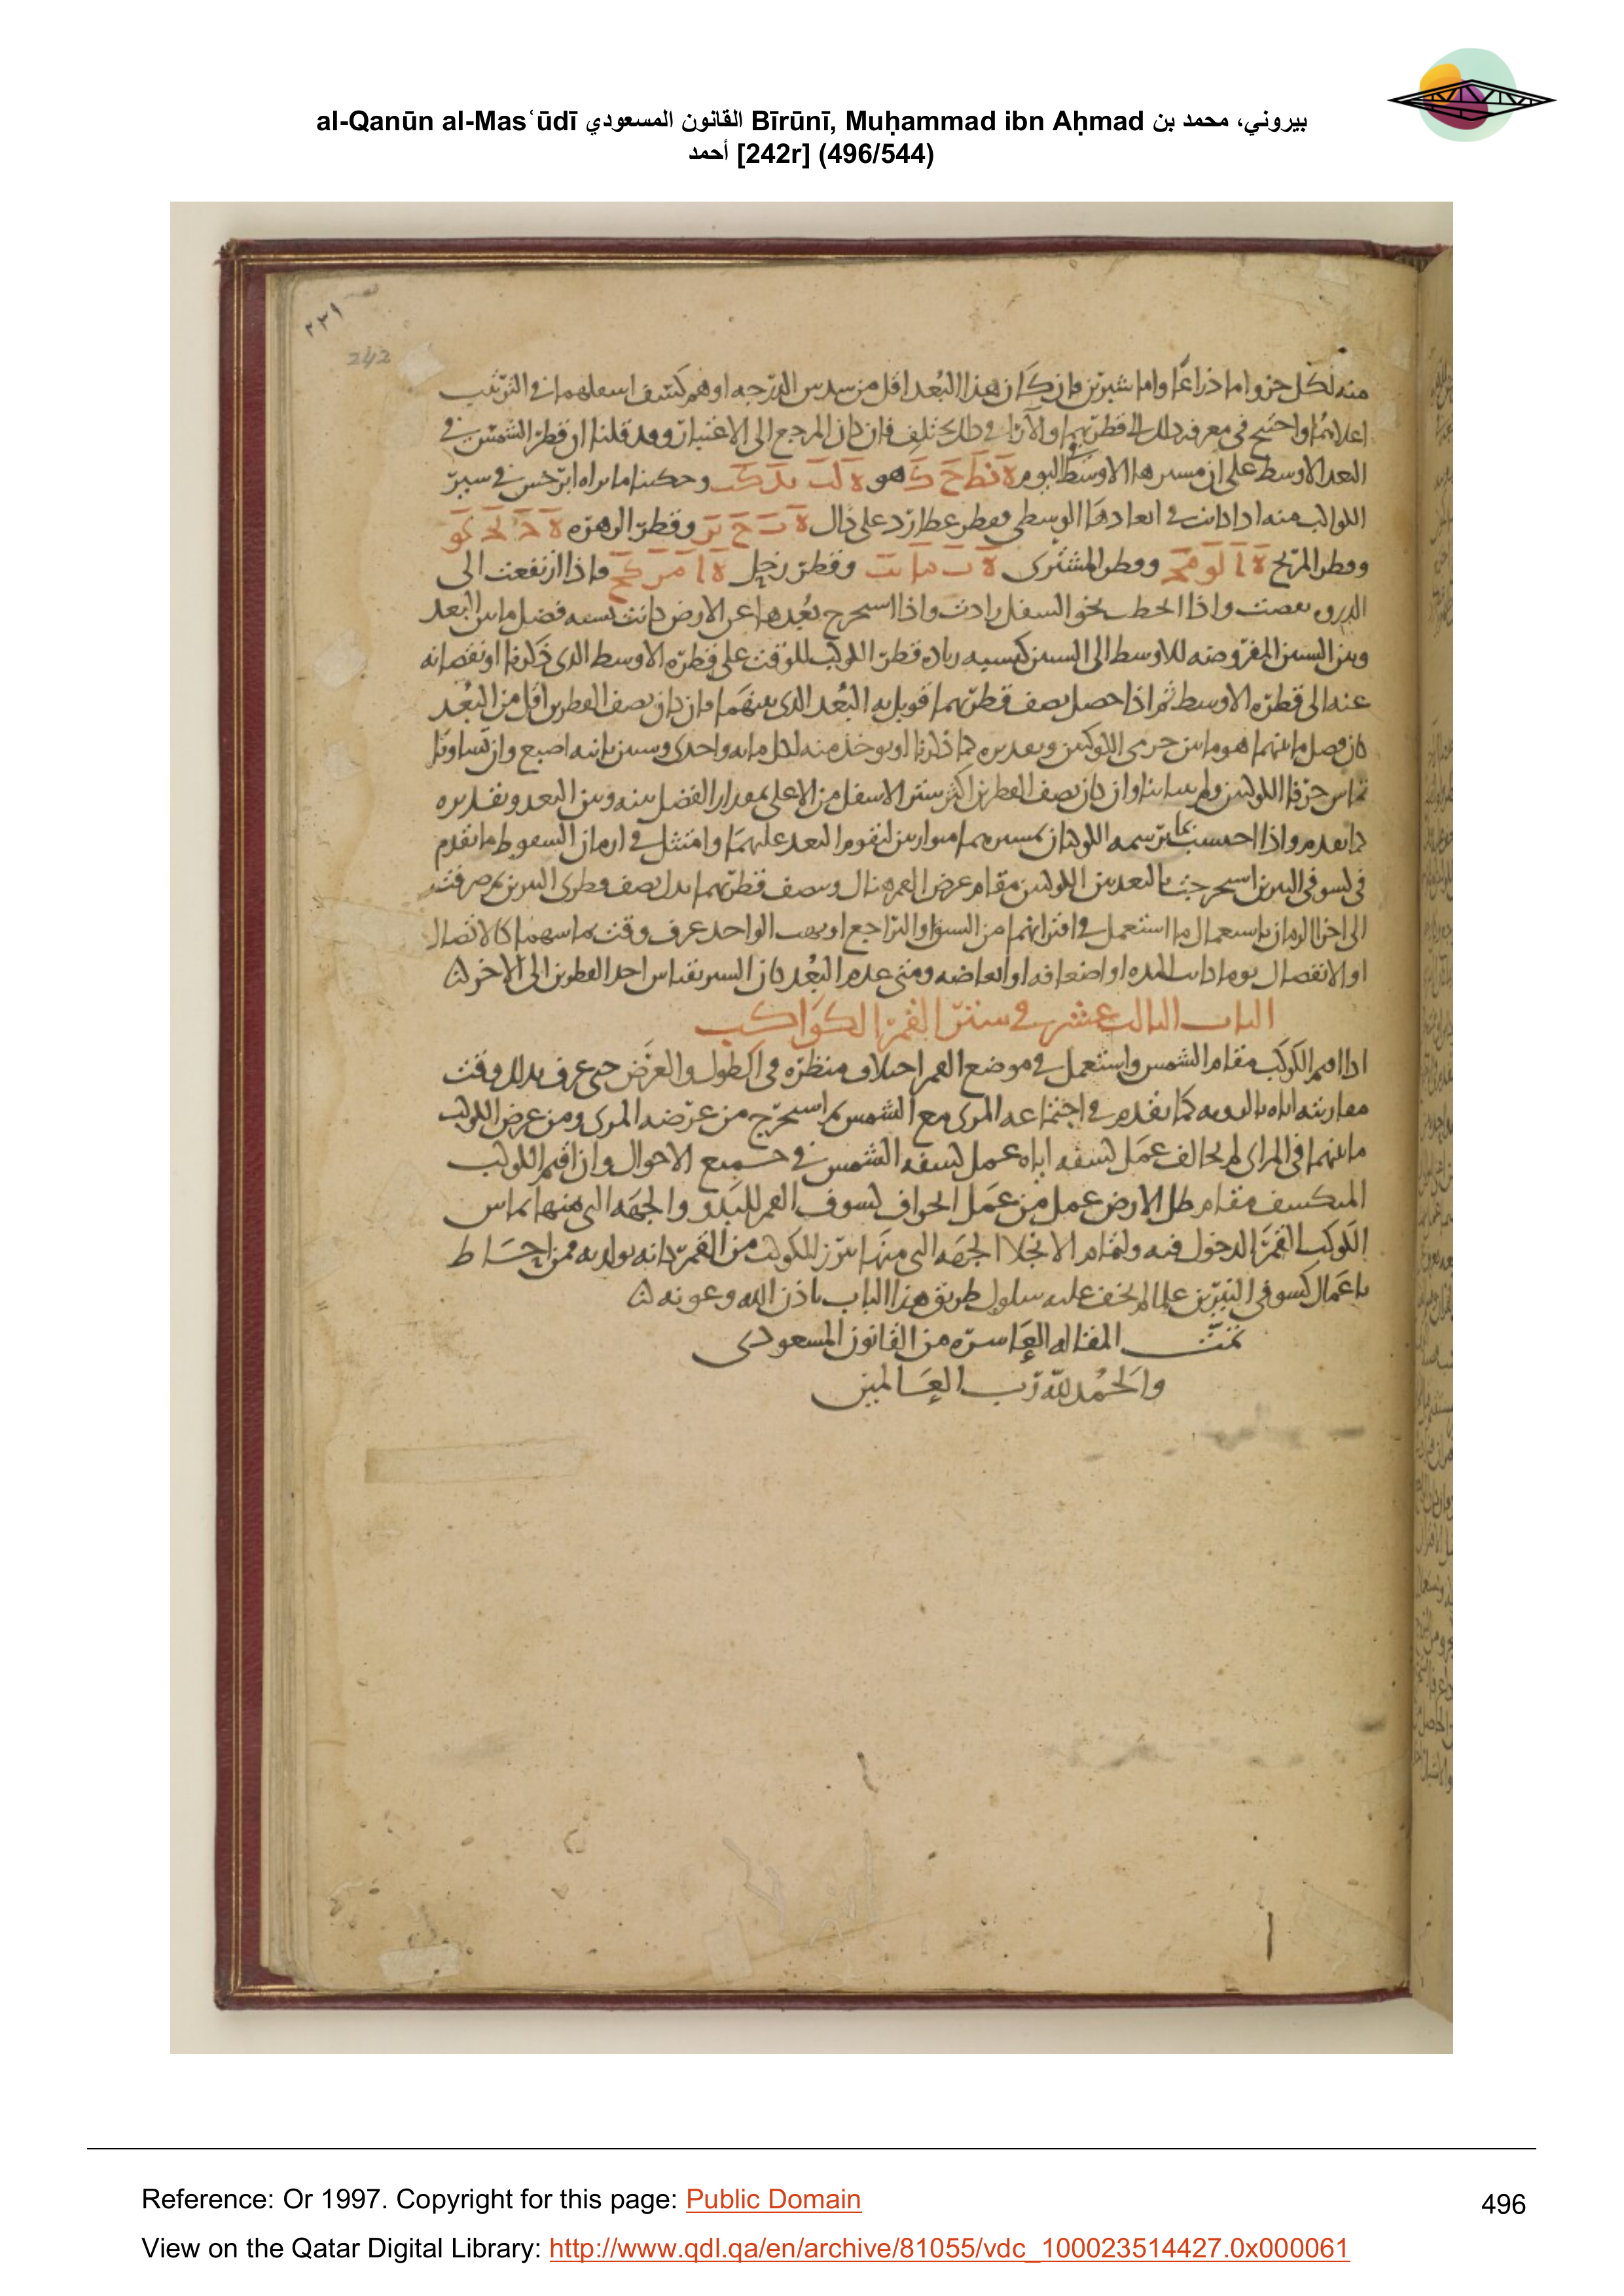 al-Qanūn al-Masʿūdī القانون المسعودي Bīrūnī, Muḥammad ibn Aḥmad بيروني، محمد بن
أحمد [242r] (496/544)
٢٣١
242
منه لكل جزو اما ذراعا واما شبرين فان كان هذا البعد اقل من سدس الدرجه اوهم كسف اسفلهما في الترتيب
اعلاهما واحتيج في معرفه ذلك الى قطريهما والآراء في ذلك تختلف فان كان المرجع الى الاعتبار وقد قلنا ان قطر الشمس في
البعد الاوسط على ان مسيرها الاوسط اليوم ه نط ح ك هو ه لب يد كب وحكينا ما يراه ابرخس في سير
الكواكب منه اذا كانت في ابعادها الوسطى فقطر عطارد على ذلك وقطر الزهره
وقطر المريخ وقطر المشترى وقطر زحل فاذا ارتفعت الى
الذروه نقصت واذا انحطت نحو السفل زادت واذا استخرج بعدها عن الارض كانت نسبه فضل ما بين البعد
وبين الستين المفروضه للاوسط الى الستين كنسبه زياده قطر الكوكب للوقت على قطره الاوسط الذى ذكرنا او نقصانه
عنه الى قطره الاوسط ثم اذا حصل نصف قطريهما قوبل به البعد الذى بينهما فان كان نصف القطرين اقل من البعد
كان فضل ما بينهما هو ما بين جرمى الكوكبين وتقديره كما ذكرنا او يوخذ منه لكل مايه واحدى وستين ثانيه اصبع وان تساويا
تماس حرفا الكوكبين ولم يتباينا وان كان نصف القطرين اكثر ستر الاسفل من الاعلى بمقدار الفضل بينه وبين البعد وتقديره
كما تقدم واذا احتسب بما يرسمه الكوكبان بمسيريهما متوازيين لتقوم البعد عليهما وامتثل في ازمان السقوط ما تقدم
في كسوفى النيرين استخرجت بالبعد بين الكوكبين مقام عرض القمر هناك ونصف قطريهما بدل نصف قطرى النيرين ثم صرفت
الى اخر الزمان باستعمال ما استعمل في اقترانهما من السوا والتراجع او بهت الواحد عرف وقت تماسهما كالاتصال
او الانفصال يوما كانت المده او اضعافه او ابعاضه ومتى عدم البعد كان الستر بقياس احد القطرين الى الاخر
الباب الثالث عشر في ستر القمر الكواكب
اذا اقيم الكوكب مقام الشمس واستعمل في موضع القمر اختلاف منظره في الطول والعرض حتى عرف بذلك وقت
مقارنته اياه بالرويه كما تقدم في اجتماعه المرى مع الشمس ثم استخرج من عرضه المرى ومن عرض الكوكب
ما بينهما في المراى لم يخالف عمل كسفه اياه عمل كسفه الشمس في جميع الاحوال وان اقيم الكوكب
المنكسف مقام ظل الارض عمل من عمل انحراف كسوف القمر للبدو والجهه التى منها يماس
الكوكب القمر الدخول فيه ولتمام الانجلا الجهه التى منها يبرز للكوكب من القمر كانه يولد به فمن احاط
باعمال كسوفى النيرين علما لم يخف عليه سلوك طريق هذا الباب باذن الله وعونه
تمت المقاله العاشره من القانون المسعودى
والحمد لله رب العالمين
Reference: Or 1997. Copyright for this page: Public Domain
496
View on the Qatar Digital Library: http://www.qdl.qa/en/archive/81055/vdc_100023514427.0x000061